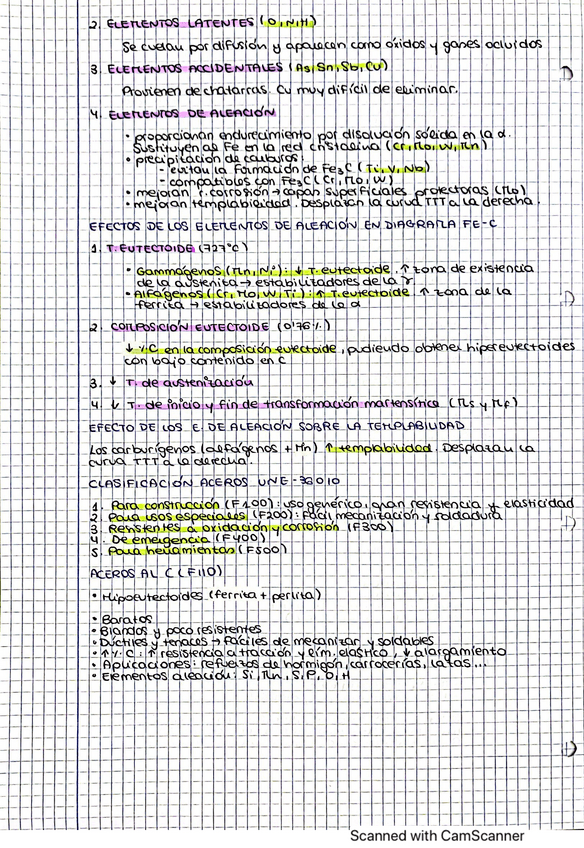 2. ELEMENTOS LATENTES (O, N, H)
Se cuelan por difusión y aparecen como óxidos y gases ocluidos
3. ELEMENTOS ACCIDENTALES (As, Sn, Sb, Cu)
Provienen de chatarras. Cu muy difícil de eliminar.
4. ELEMENTOS DE ALEACIÓN
• proporcionan endurecimiento por disolución sólida en la α.
Sustituyen al Fe en la red cristalina (Cr, Mo, W, Mn)
• precipitación de carburos:
- evitan la formación de Fe3C (Ti, V, Nb)
- compatibles con Fe3C (Cr, Mo, W)
• mejoran r. corrosión → capas superficiales protectoras (Mo)
• mejoran templabilidad. Desplazan la curva TTT a la derecha.
EFECTOS DE LOS ELEMENTOS DE ALEACIÓN EN DIAGRAMA FE-C
1. T. EUTECTOIDE (727°C)
• Gammágenos (Mn, Ni): ↓ T. eutectoide, ↑ zona de existencia
de la austenita → estabilizadores de la γ
• Alfágenos (Cr, Mo, W, Ti): ↑ T. eutectoide ↑ zona de la
ferrita → estabilizadores de la α
2. COMPOSICIÓN EUTECTOIDE (0'76%)
↓ %C en la composición eutectoide, pudiendo obtener hipereutectoides
con bajo contenido en C
3. ↓ T. de austenización
4. ↓ T. de inicio y fin de transformación martensítica (Ms y Mf)
EFECTO DE LOS E. DE ALEACIÓN SOBRE LA TEMPLABILIDAD
Los carburígenos (alfágenos + Mn) ↑ templabilidad. Desplazan la
curva TTT a la derecha.
CLASIFICACIÓN ACEROS UNE-36010
1. Para construcción (F100): uso genérico, gran resistencia y elasticidad
2. Para usos especiales (F200): fácil mecanización y soldadura
3. Resistentes a oxidación y corrosión (F300)
4. De emergencia (F400)
5. Para herramientas (F500)
ACEROS AL C (F110)
• Hipoeutectoides (ferrita + perlita)
• Baratos
• Blandos y poco resistentes
• Dúctiles y tenaces → fáciles de mecanizar y soldables
• ↑ %C: ↑ resistencia a tracción y lím. elástico, ↓ alargamiento
• Aplicaciones: refuerzos de hormigón, carrocerías, latas...
• Elementos aleación: Si, Mn, S, P, O, H
Scanned with CamScanner